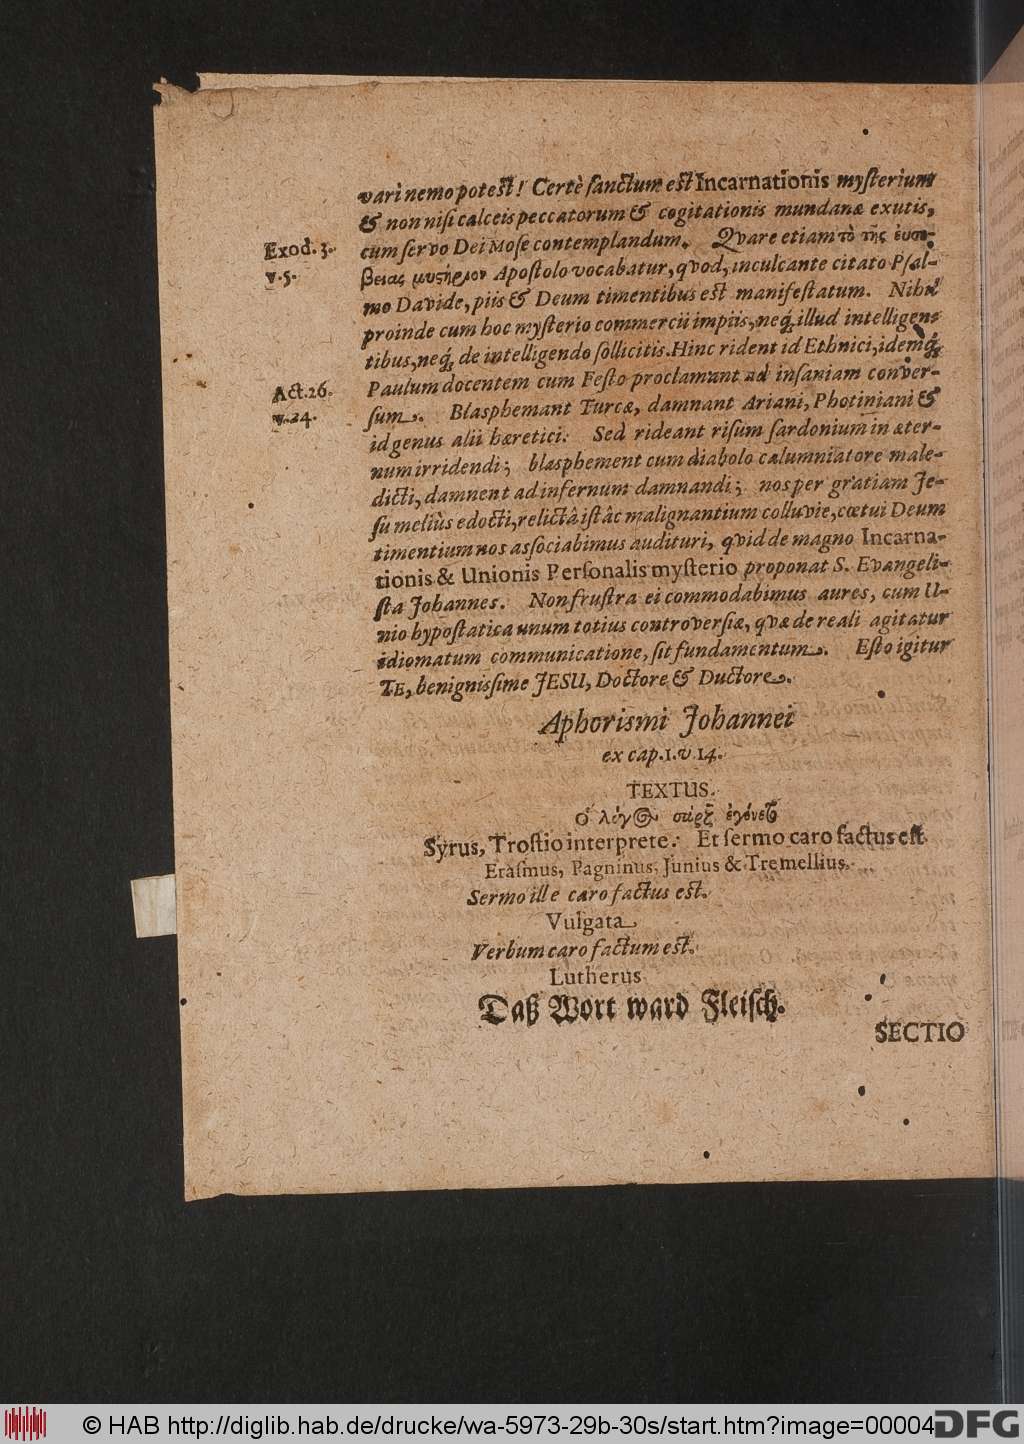 vari nemo potest! Certè sanctum est Incarnationis mysterium
& non nisi calceis peccatorum & cogitationis mundanæ exutis,
Exod. 3.
v. 5.
cum servo Dei Mose contemplandum. Qvare etiam τὸ τῆς ἐυσε-
βειας μυςήριον Apostolo vocabatur, qvod, inculcante citato Psal-
mo Davide, piis & Deum timentibus est manifestatum. Nihil
proinde cum hoc mysterio commercii impiis, neq; illud intelligen-
tibus, neq; de intelligendo sollicitis. Hinc rident id Ethnici, idemq;
Act. 26.
v. 24.
Paulum docentem cum Festo proclamant ad insaniam conver-
sum. Blasphemant Turcæ, damnant Ariani, Photiniani &
id genus alii hæretici: Sed rideant risum sardonium in æter-
num irridendi; blasphement cum diabolo calumniatore male-
dicti, damnent ad infernum damnandi; nos per gratiam Je-
su meliùs edocti, relictâ istâc malignantium colluvie, cœtui Deum
timentium nos associabimus audituri, qvid de magno Incarna-
tionis & Unionis Personalis mysterio proponat S. Evangeli-
sta Johannes. Non frustra ei commodabimus aures, cum U-
nio hypostatica unum totius controversiæ, qvæ de reali agitatur
idiomatum communicatione, sit fundamentum. Esto igitur
TE, benignissime JESU, Doctore & Ductore.
Aphorismi Johannei
ex cap. 1. v 14.
TEXTUS.
ὁ λόγος σὰρξ ἐγένετο
Syrus, Trostio interprete: Et sermo caro factus est
Erasmus, Pagninus, Junius & Tremellius.
Sermo ille caro factus est.
Vulgata
Verbum caro factum est.
Lutherus
Daß Wort ward Fleisch.
SECTIO
© HAB http://diglib.hab.de/drucke/wa-5973-29b-30s/start.htm?image=00004
DFG